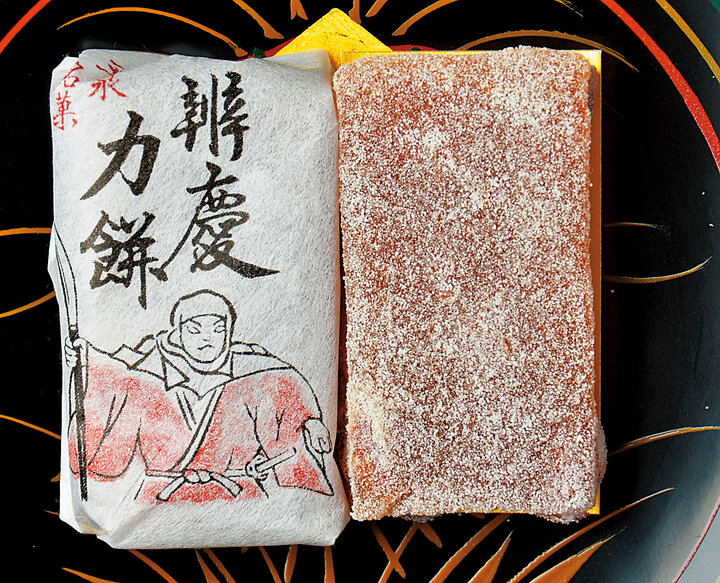 泉
名菓
辨慶
力餅